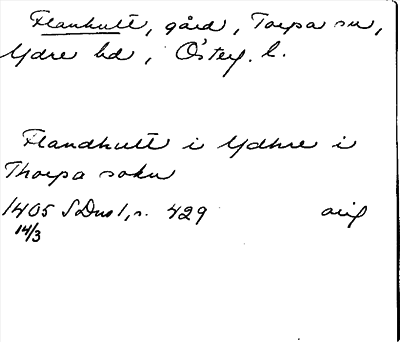 Flanhult, gård, Torpa sn,
Ydre hd, Österg. l.
Flandhult i Ydhre i
Thorpa sokn
1405 SDns 1, s. 429 orig
14/3